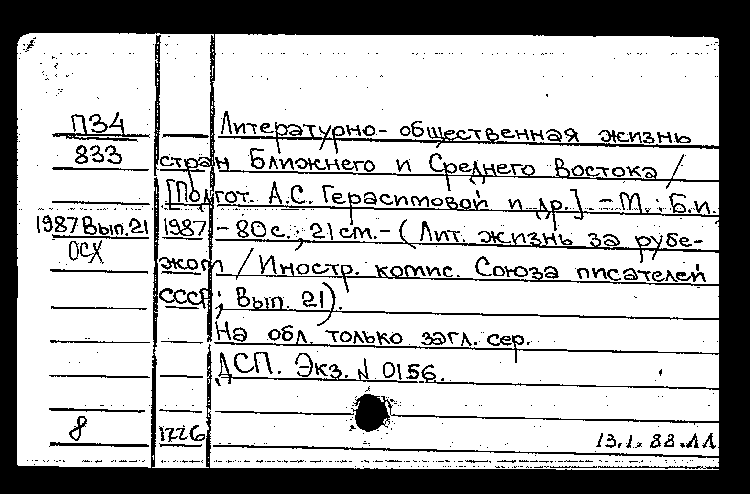 П34 Литературно-общественная жизнь
833 стран Ближнего и Среднего Востока /
[Подгот. А.С. Герасимовой и др.]. – М.: Б.и.
1987 Вып. 21 1987 – 80 с.; 21 см. – (Лит. жизнь за рубе-
ОСХ
жом / Иностр. комис. Союза писателей
СССР; Вып. 21).
На обл. только загл. сер.
ДСП. Экз. N 0156.
8 1226 13.1.88.ЛЛ